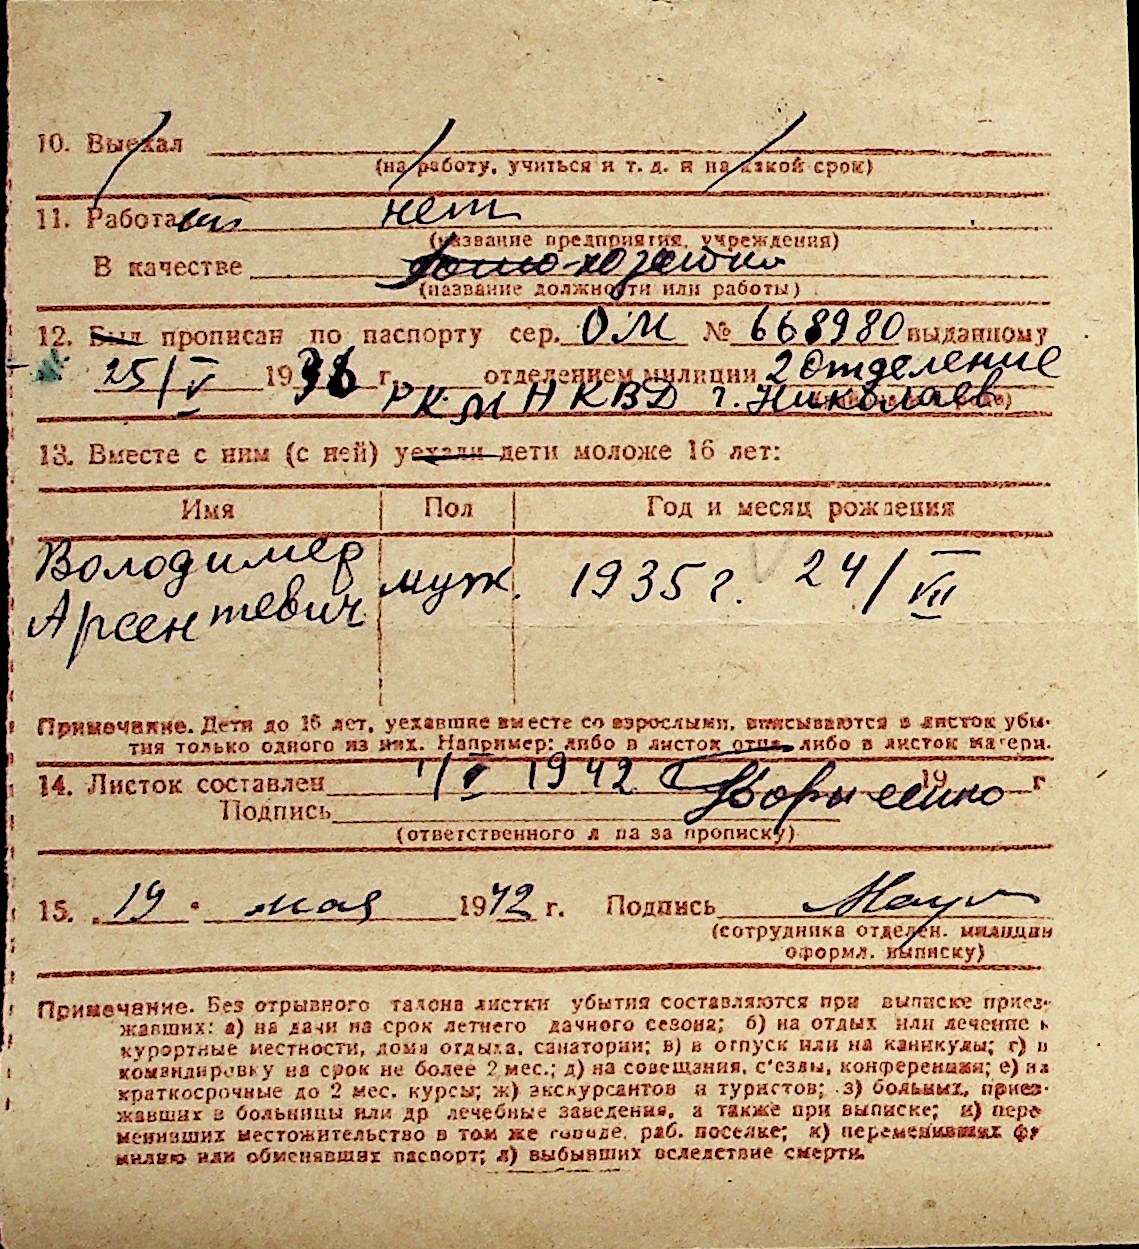 10. Выехал
(на работу, учиться и т. д. и на какой срок)
11. Работает нет
(название предприятия, учреждения)
В качестве домо-хозяйка
(название должности или работы)
12. Был прописан по паспорту сер. ОМ № 668980 выданному
25/V 1938 г. отделением милиции 2 Отделение
РКМ НКВД г. Николаев
13. Вместе с ним (с ней) уехали дети моложе 16 лет:
Имя Пол Год и месяц рождения
Володимер муж. 1935 г. 24/VII
Арсентевич
Примечание. Дети до 16 лет, уехавшие вместе со взрослыми, вписываются в листок убы-
тия только одного из них. Например: либо в листок отца, либо в листок матери.
14. Листок составлен 1/V 1942 19 г
Подпись
(ответственного л ца за прописку)
15. 19 • мая 1942 г. Подпись
(сотрудника отделен. милиции
оформл. выписку)
Примечание. Без отрывного талона листки убытия составляются при выписке приез-
жавших: а) на дачи на срок летнего дачного сезона; б) на отдых или лечение в
курортные местности, дома отдыха, санатории; в) в отпуск или на каникулы; г) в
командировку на срок не более 2 мес.; д) на совещания, с'езды, конференции; е) на
краткосрочные до 2 мес. курсы; ж) экскурсантов и туристов; з) больных, приез-
жавших в больницы или др лечебные заведения, а также при выписке; и) пере
менивших местожительство в том же городе, раб. поселке; к) переменивших фа
милию или обменявших паспорт; л) выбывших вследствие смерти.